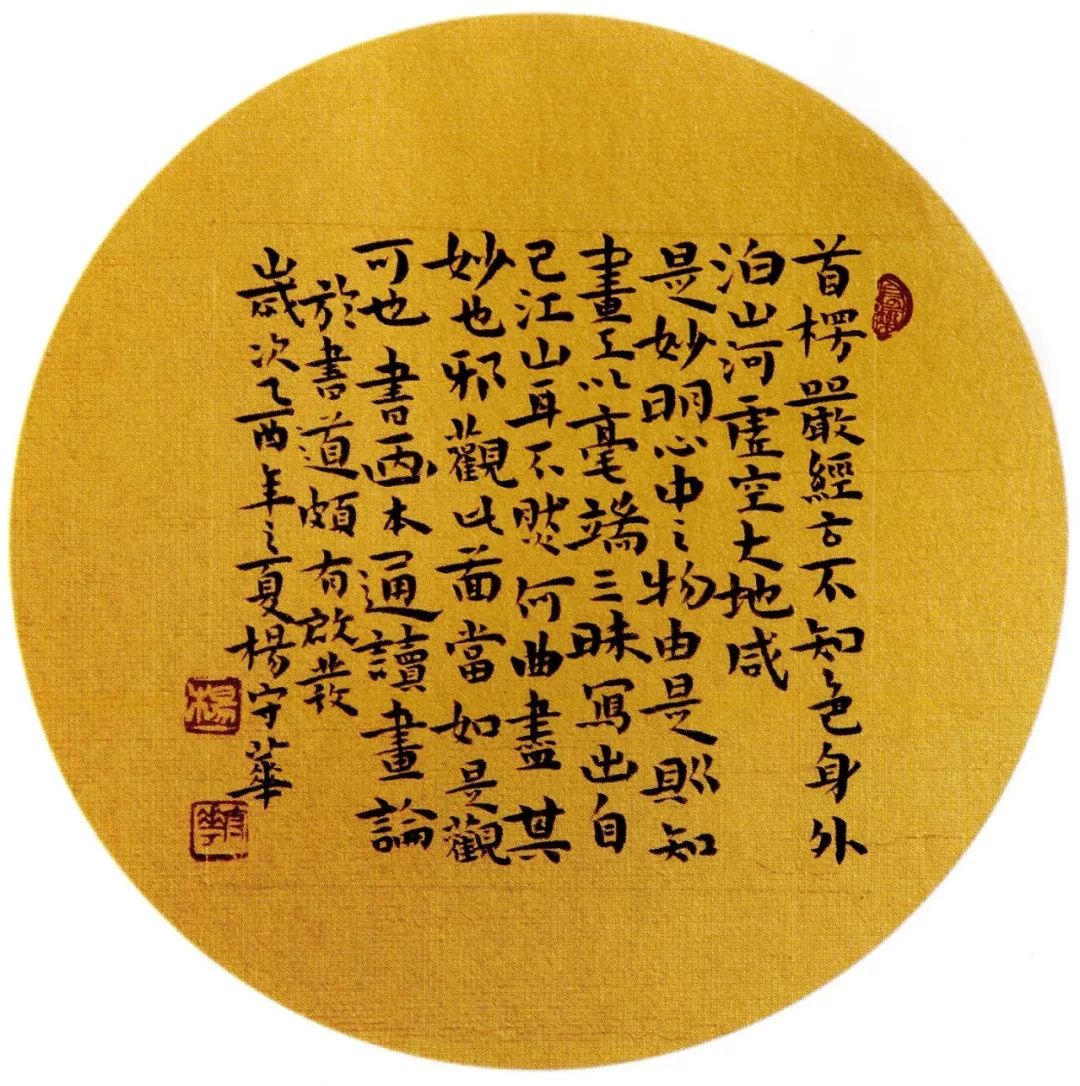 首楞嚴經言不知色身外
泊山河虛空大地咸
是妙明心中之物由是則知
畫工以毫端三昧寫出自
己江山耳不然何曲盡其
妙也邪觀此當如是觀
可也 書画本通讀畫論
於書道頗有啟發
歲次乙酉年之夏楊守華
楊
守華